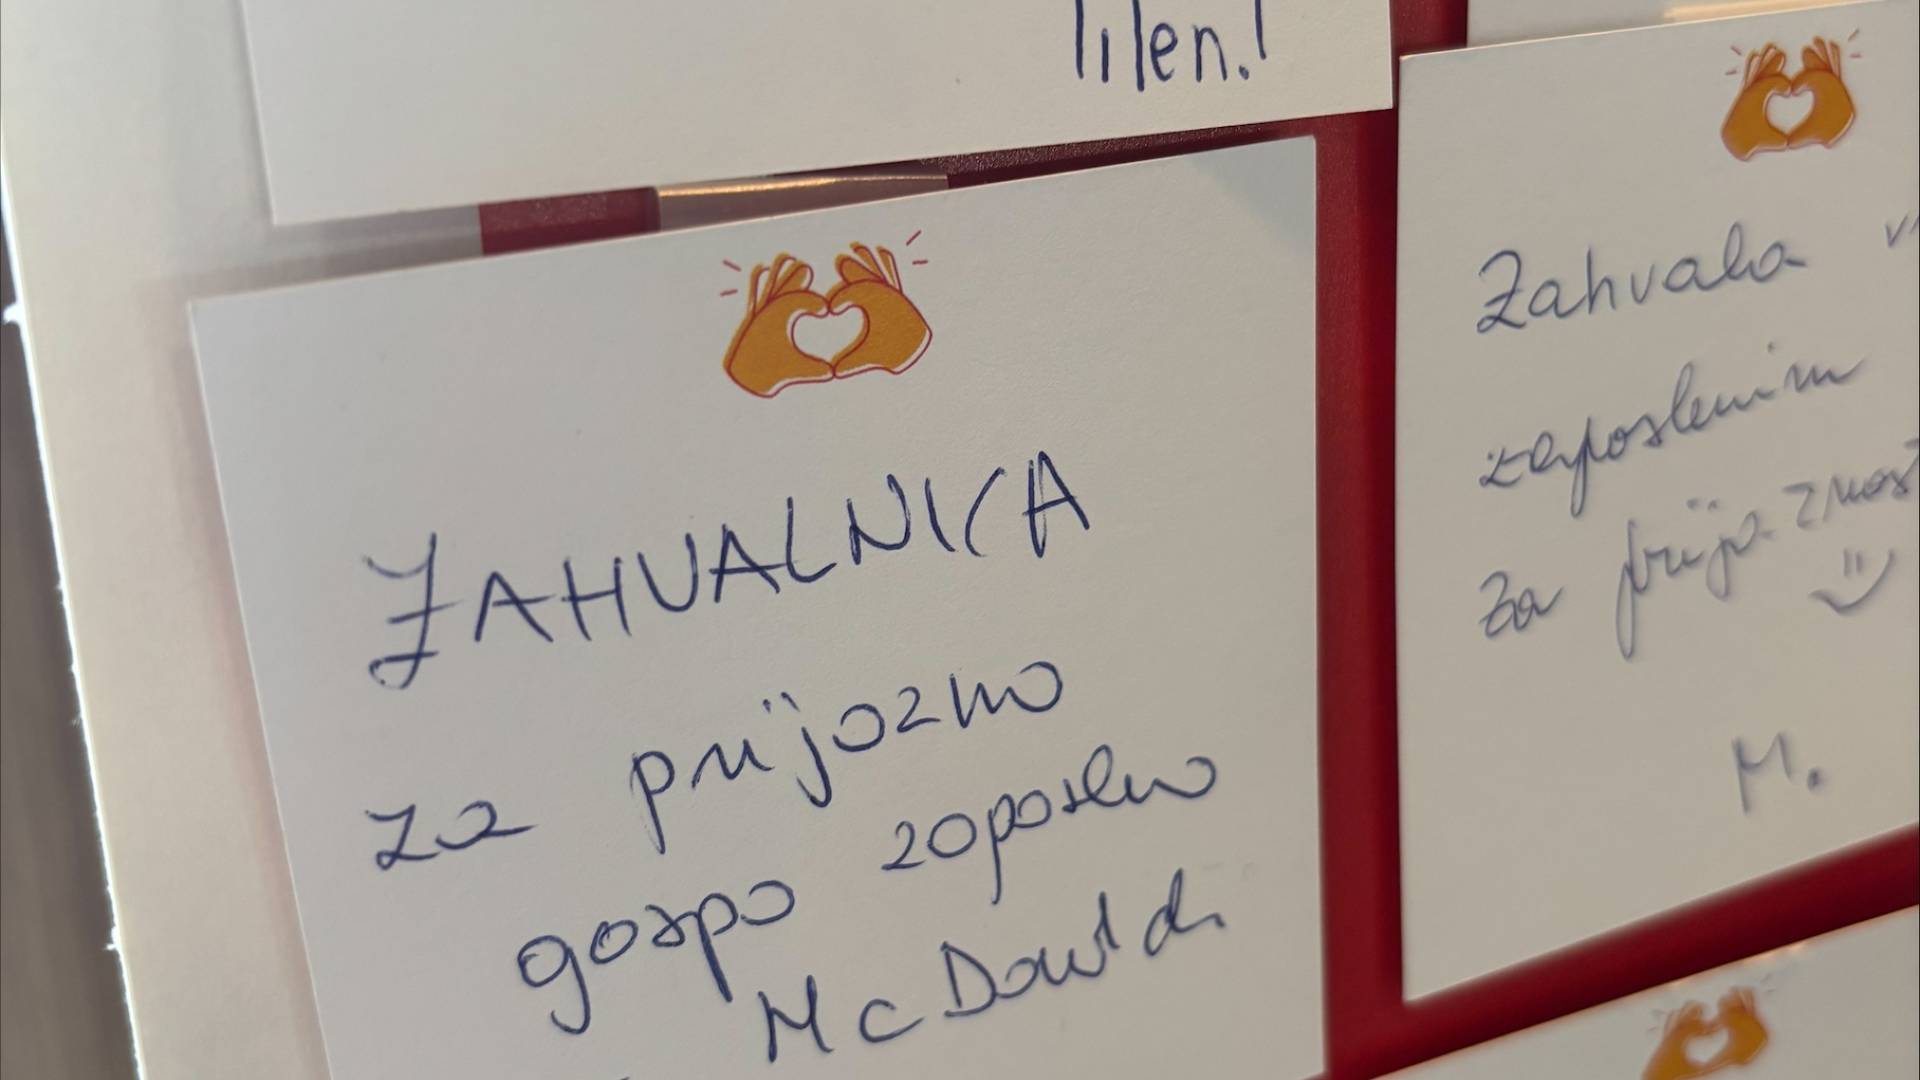 Tilen.!
ZAHVALNICA
za prijazno
gospo zaposleno
McDonald
Zahvala
zaposlenim
za prijaznost
M.